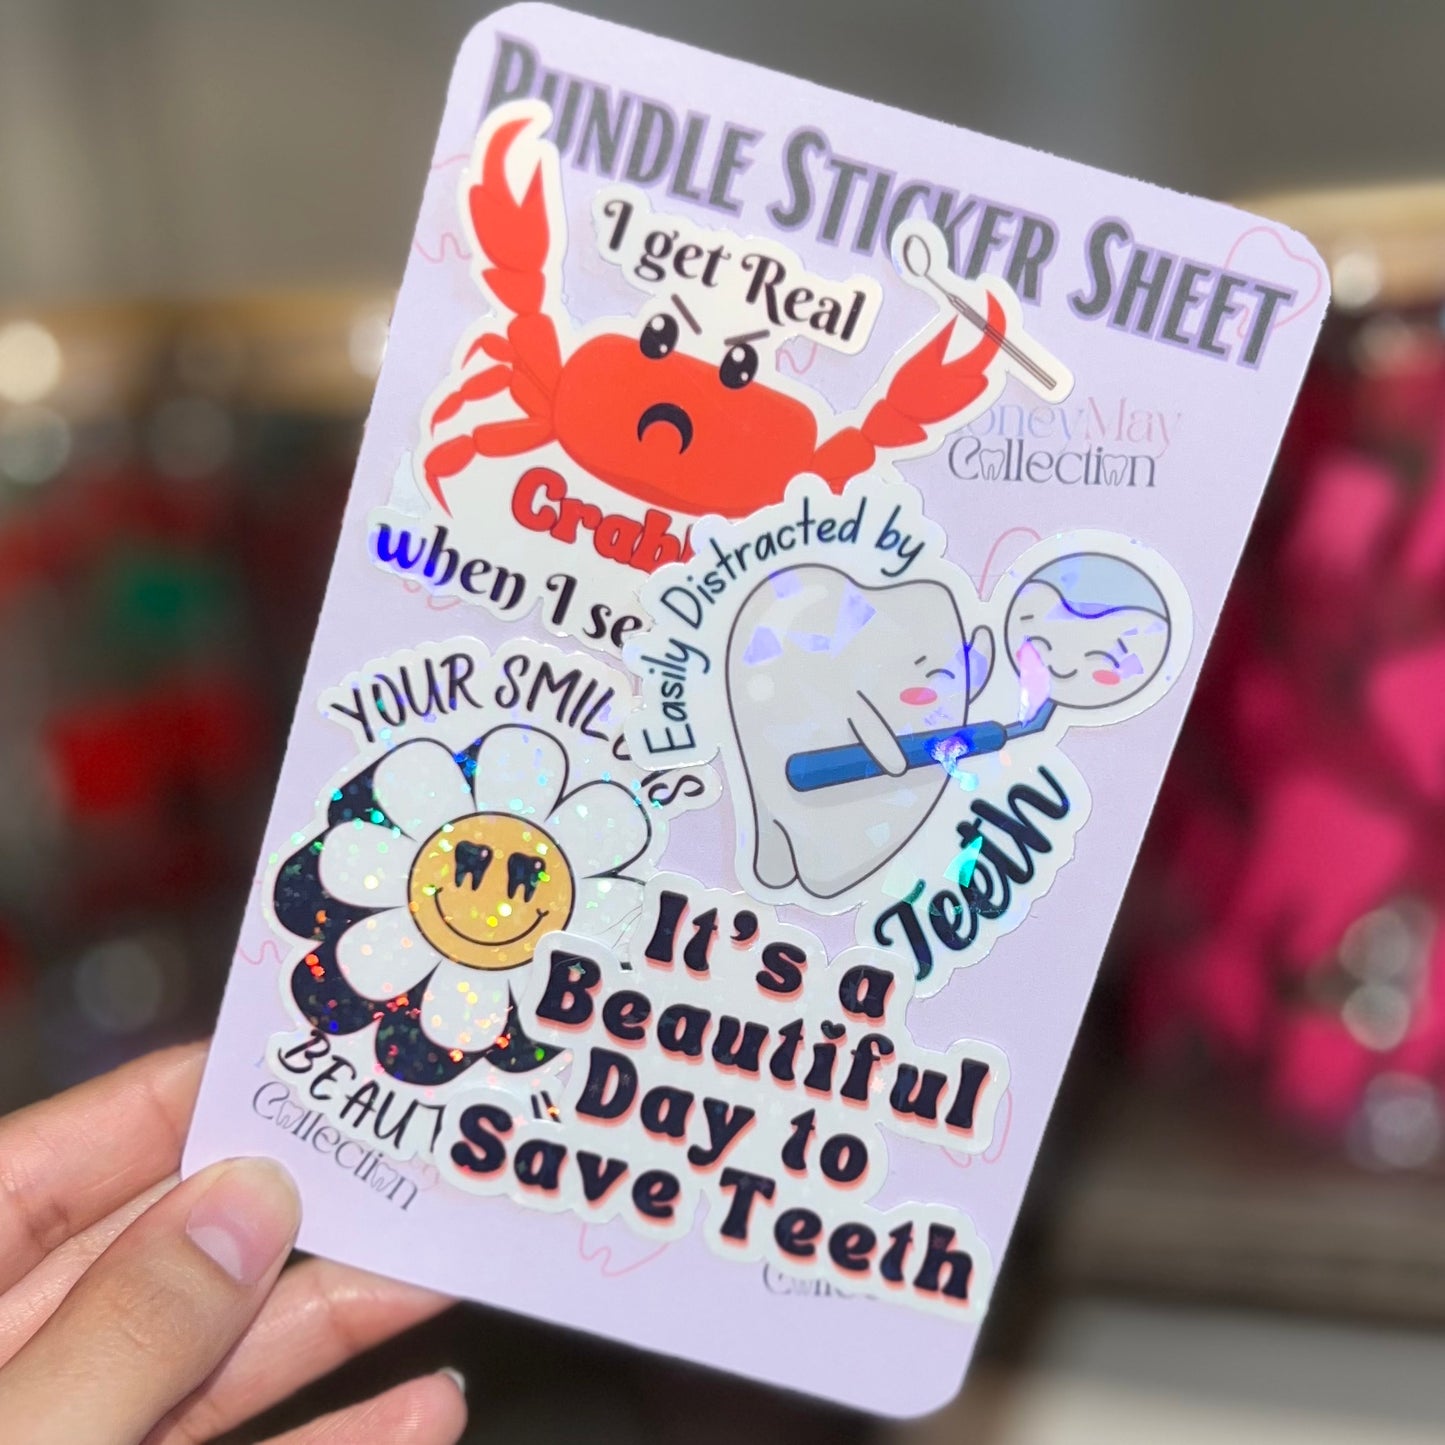 BUNDLE STICKER SHEET
I get Real
Crab
when I se
oneyMay
Collection
Easily Distracted by
Teeth
YOUR SMILE IS
BEAUT
It's a
Beautiful
Day to
Save Teeth
Collection